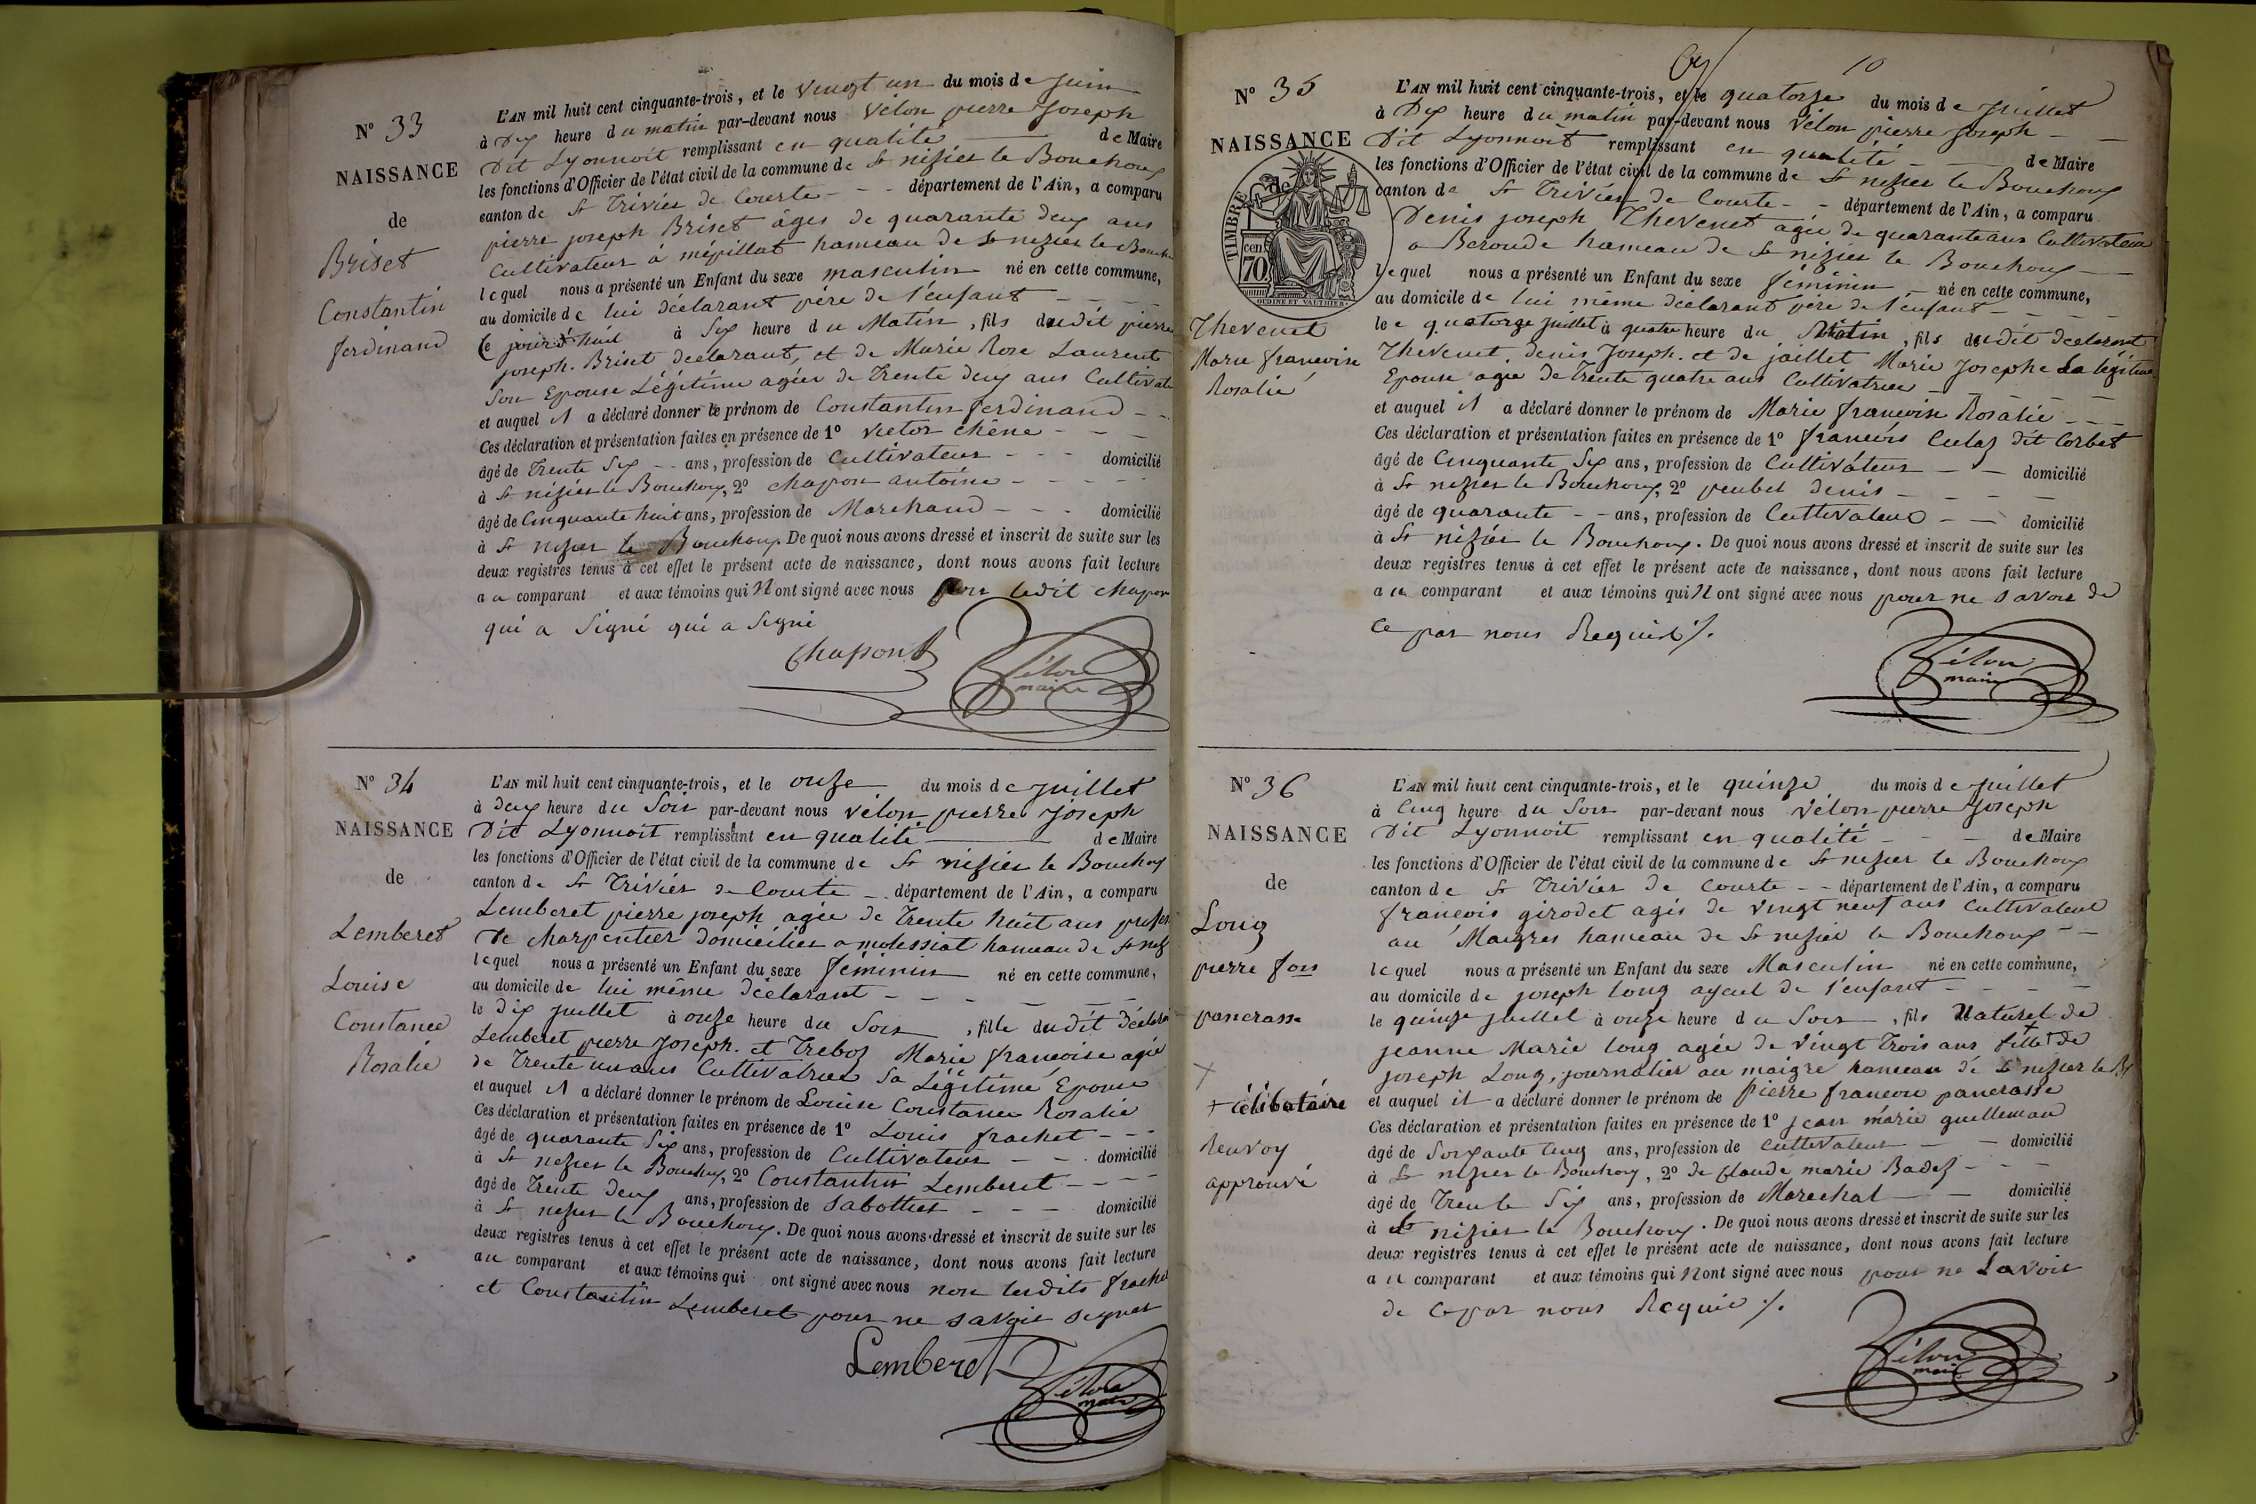 N° 33
NAISSANCE
de
Briset
Constantin
ferdinand
L'AN mil huit cent cinquante-trois, et le vingt un du mois de Juin
à Dix heure du matin par-devant nous Vélon pierre Joseph
Dit Lyonnoit remplissant en qualité de Maire
les fonctions d'Officier de l'état civil de la commune de St nizier le Bouchoux
canton de St Trivier de Courte - - département de l'Ain, a comparu
pierre joseph Briset âges de quarante deux ans
Cultivateur à mépillat hameau de St nezier le Bouch
lequel nous a présenté un Enfant du sexe masculin né en cette commune,
au domicile de lui déclarant père de l'enfant - - - -
Ce jourd'huil à Six heure du Matin, fils dudit pierre
joseph Briset déclarant, et de Marie Rose Laurent
Son Epouse Légitime agée de Trente deux ans Cultivat
et auquel il a déclaré donner le prénom de Constantin ferdinand - -
Ces déclaration et présentation faites en présence de 1° victor chêne - - -
âgé de Trente Six - - ans, profession de Cultivateur - - - domicilié
à St nizier le Bouchoux, 2° chapon antoine - - - -
âgé de Cinquante huit ans, profession de Marchand - - - domicilié
à St nezier le Bouchoux. De quoi nous avons dressé et inscrit de suite sur les
deux registres tenus à cet effet le présent acte de naissance, dont nous avons fait lecture
au comparant et aux témoins qui N ont signé avec nous fors ledit chapon
qui a Signé qui a Signé
Chapont
Vélon
maire
N° 34
NAISSANCE
de
Lemberet
Louise
Constance
Rosalie
L'AN mil huit cent cinquante-trois, et le onze du mois de Juillet
à deux heure du Soir par-devant nous vélon pierre Joseph
Dit Lyonnoit remplissant en qualité de Maire
les fonctions d'Officier de l'état civil de la commune de St nizier le Bouchoux
canton de St Trivier de Courte - département de l'Ain, a comparu
Lemberet pierre joseph agée de Trente huit ans profes
de charpentier domicilier a molessiat hameau de St nez
lequel nous a présenté un Enfant du sexe féminin né en cette commune,
au domicile de lui même déclarant - - - - - -
le dix juillet à onze heure du Soir, fille dudit déclara
Lemberet pierre Joseph. et Treboz Marie françoise agée
de Trente un ans Cultivatrice Sa Légitime Epouse
et auquel il a déclaré donner le prénom de Louise Constance Rosalie
Ces déclaration et présentation faites en présence de 1° Louis frachet - - -
âgé de quarante Six ans, profession de Cultivateur - - domicilié
à St nezier le Bouchoux, 2° Constantin Lemberet - - - -
âgé de Trente deux ans, profession de Sabottier - - - domicilié
à St nezier le Bouchoux. De quoi nous avons dressé et inscrit de suite sur les
deux registres tenus à cet effet le présent acte de naissance, dont nous avons fait lecture
au comparant et aux témoins qui ont signé avec nous non lesdits frachet
et Constantin Lemberet pour ne savoir signer
Lemberet
Vélon
maire
10
N° 35
NAISSANCE
de
TIMBRE
cen
70
OUDINE ET VAUTHIER
Thevenet
Marie françoise
Rosalie
L'AN mil huit cent cinquante-trois, et le quatorze du mois de Juillet
à Dix heure du matin par-devant nous Vélon pierre Joseph - -
Dit Lyonnoit remplissant en qualité - - de Maire
les fonctions d'Officier de l'état civil de la commune de St nezier le Bouchoux
canton de St Trivier de Courte - - département de l'Ain, a comparu
Denis joseph Thevenet agée de quarante ans Cultivateur
a Beroude hameau de St nizier le Bouchoux - -
lequel nous a présenté un Enfant du sexe féminin - né en cette commune,
au domicile de lui même déclarant père de l'enfant - - - -
le quatorze juillet à quatre heure du Matin, fils dudit déclarant
Thevenet denis Joseph. et de jaillet Marie Josephe Sa légitime
Epouse agée de Trente quatre ans Cultivatrice - - - -
et auquel il a déclaré donner le prénom de Marie françoise Rosalie - - -
Ces déclaration et présentation faites en présence de 1° françois Culaz dit Corbet
âgé de Cinquante Six ans, profession de Cultivateur - - domicilié
à St nezier le Bouchoux, 2° peubel denis - - - -
âgé de quarante - - ans, profession de Cultivateur - - domicilié
à St nizier le Bouchoux. De quoi nous avons dressé et inscrit de suite sur les
deux registres tenus à cet effet le présent acte de naissance, dont nous avons fait lecture
au comparant et aux témoins qui N ont signé avec nous pour ne savoir de
ce par nous Requis ./.
Vélon
maire
N° 36
NAISSANCE
de
Long
pierre fois
pancrasse
+
+ célibataire
Renvoy
approuvé
L'AN mil huit cent cinquante-trois, et le quinze du mois de Juillet
à Cinq heure du Soir par-devant nous Vélon pierre Joseph
Dit Lyonnoit remplissant en qualité - - de Maire
les fonctions d'Officier de l'état civil de la commune de St nezier le Bouchoux
canton de St Trivier de Courte - - département de l'Ain, a comparu
françois girodet agés de vingt neuf ans Cultivateur
au Maigres hameau de St nezier le Bouchoux - -
lequel nous a présenté un Enfant du sexe Masculin né en cette commune,
au domicile de joseph long ayeul de l'enfant - - - -
le quinze juillet à onze heure du Soir, fils Naturel de
jeanne Marie long agée de vingt Trois ans + fille de
joseph Long, journalier au maigre hameau de St nezier le B
et auquel il a déclaré donner le prénom de Pierre françois pancrasse
Ces déclaration et présentation faites en présence de 1° jean marie guilleman
âgé de Soixante Cinq ans, profession de Cultivateur - - domicilié
à St nezier le Bouchoux, 2° de Claude marie Badez - - -
âgé de Trente Six ans, profession de Marechal - - domicilié
à St nizier le Bouchoux. De quoi nous avons dressé et inscrit de suite sur les
deux registres tenus à cet effet le présent acte de naissance, dont nous avons fait lecture
au comparant et aux témoins qui N ont signé avec nous pour ne Savoir
de ce par nous Requis ./.
Vélon
maire